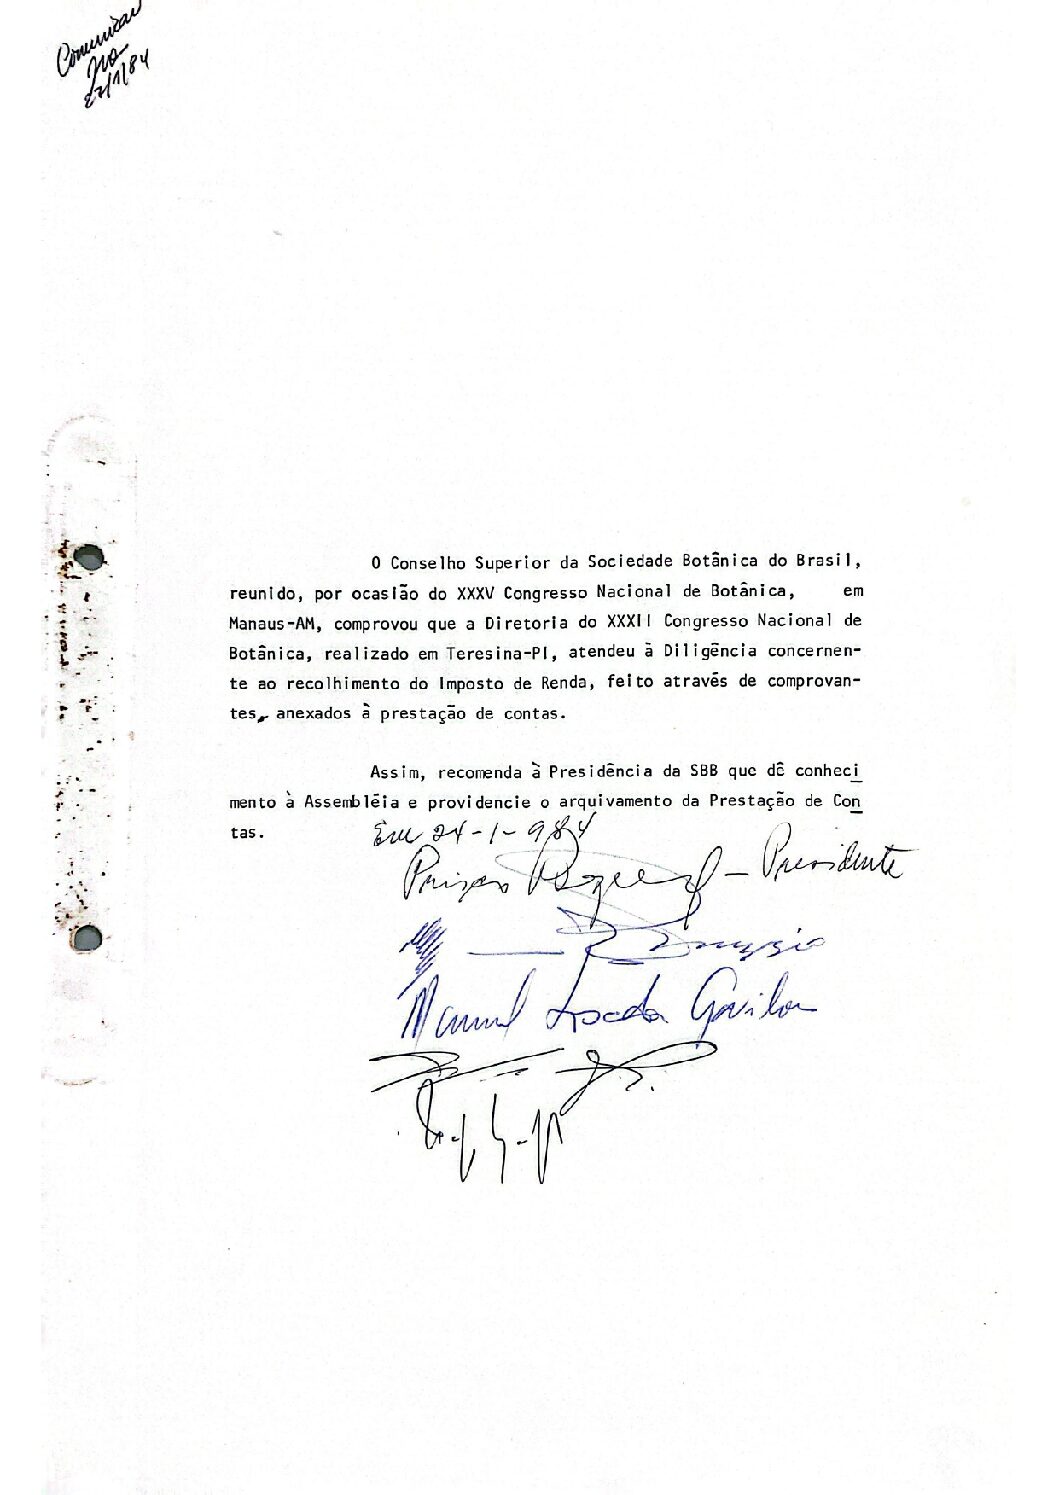 Comunicar
O Conselho Superior da Sociedade Botânica do Brasil,
reunido, por ocasião do XXXV Congresso Nacional de Botânica, em
Manaus-AM, comprovou que a Diretoria do XXXII Congresso Nacional de
Botânica, realizado em Teresina-PI, atendeu à Diligência concernen-
te ao recolhimento do Imposto de Renda, feito através de comprovan-
tes, anexados à prestação de contas.
Assim, recomenda à Presidência da SBB que dê conheci
mento à Assembléia e providencie o arquivamento da Prestação de Con
tas.
Em 24-1-984
— Presidente
Manuel Losada Gavilan